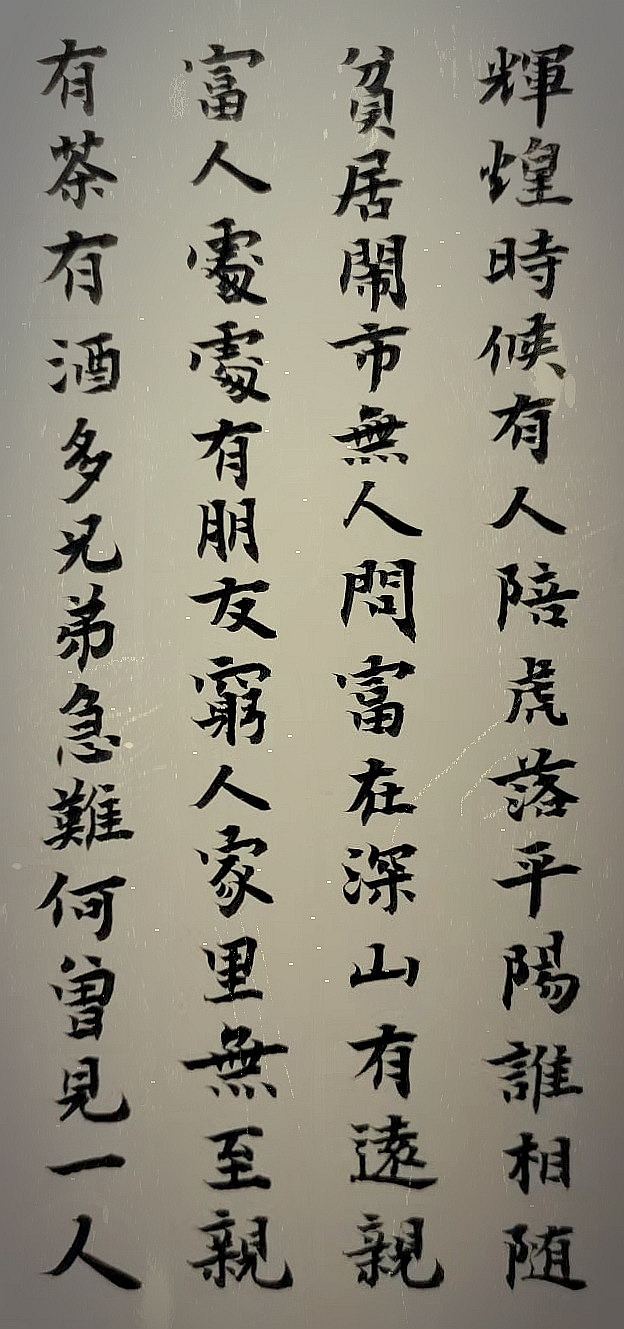 輝煌時候有人陪虎落平陽誰相随
貧居鬧市無人問富在深山有遠親
富人處處有朋友窮人家里無至親
有茶有酒多兄弟急難何曾見一人